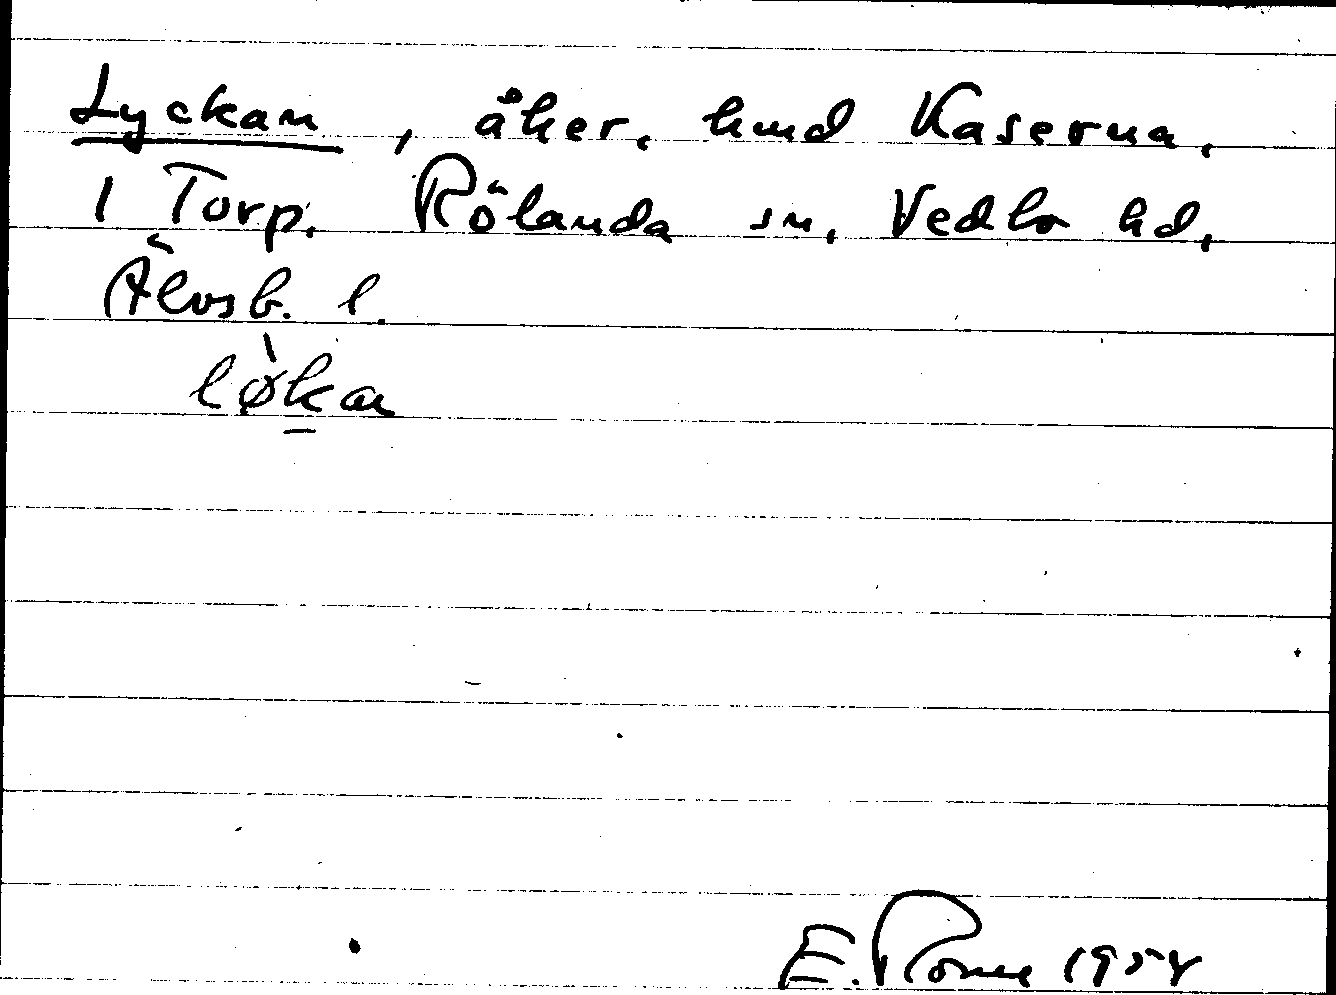 Lyckan, åker, hmd Kaserna,
1 Torp. Rölanda sn, Vedbo hd,
Älvsb. l.
lø̀kan
E. 195